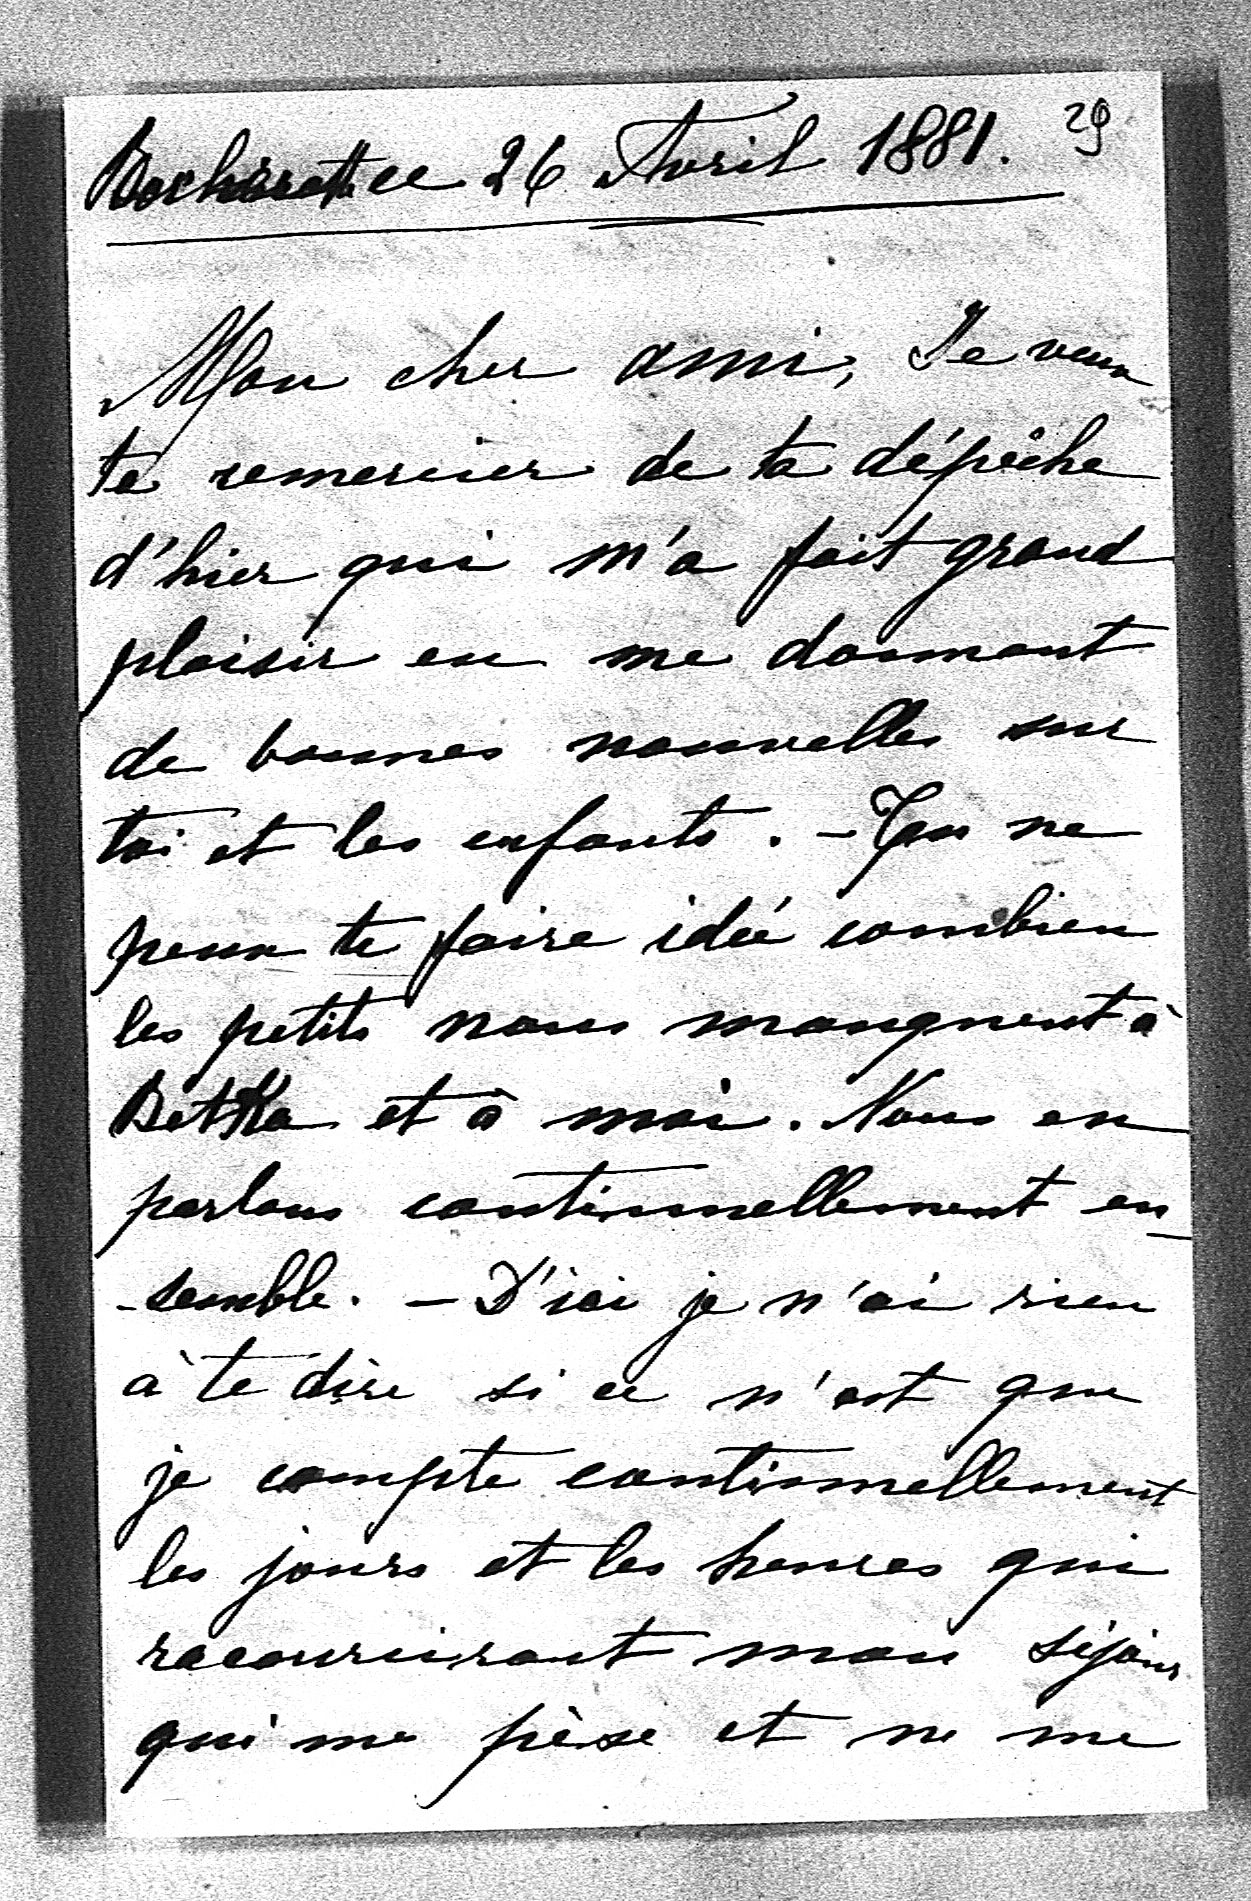 ce 26 Avril 1881. 29
Mon cher ami, Je veux
te remercier de ta dépêche
d'hier qui m'a fait grand
plaisir en me donnant
de bonnes nouvelles sur
toi et les enfants. - Tu ne
peux te faire idée combien
les petits nous manquent à
Betka et à moi. Nous en
parlons continuellement en
-semble. - D'ici je n'ai rien
à te dire si ce n'est que
je compte continuellement
les jours et les heures qui
racourciront mon séjour
qui me pèse et ne me